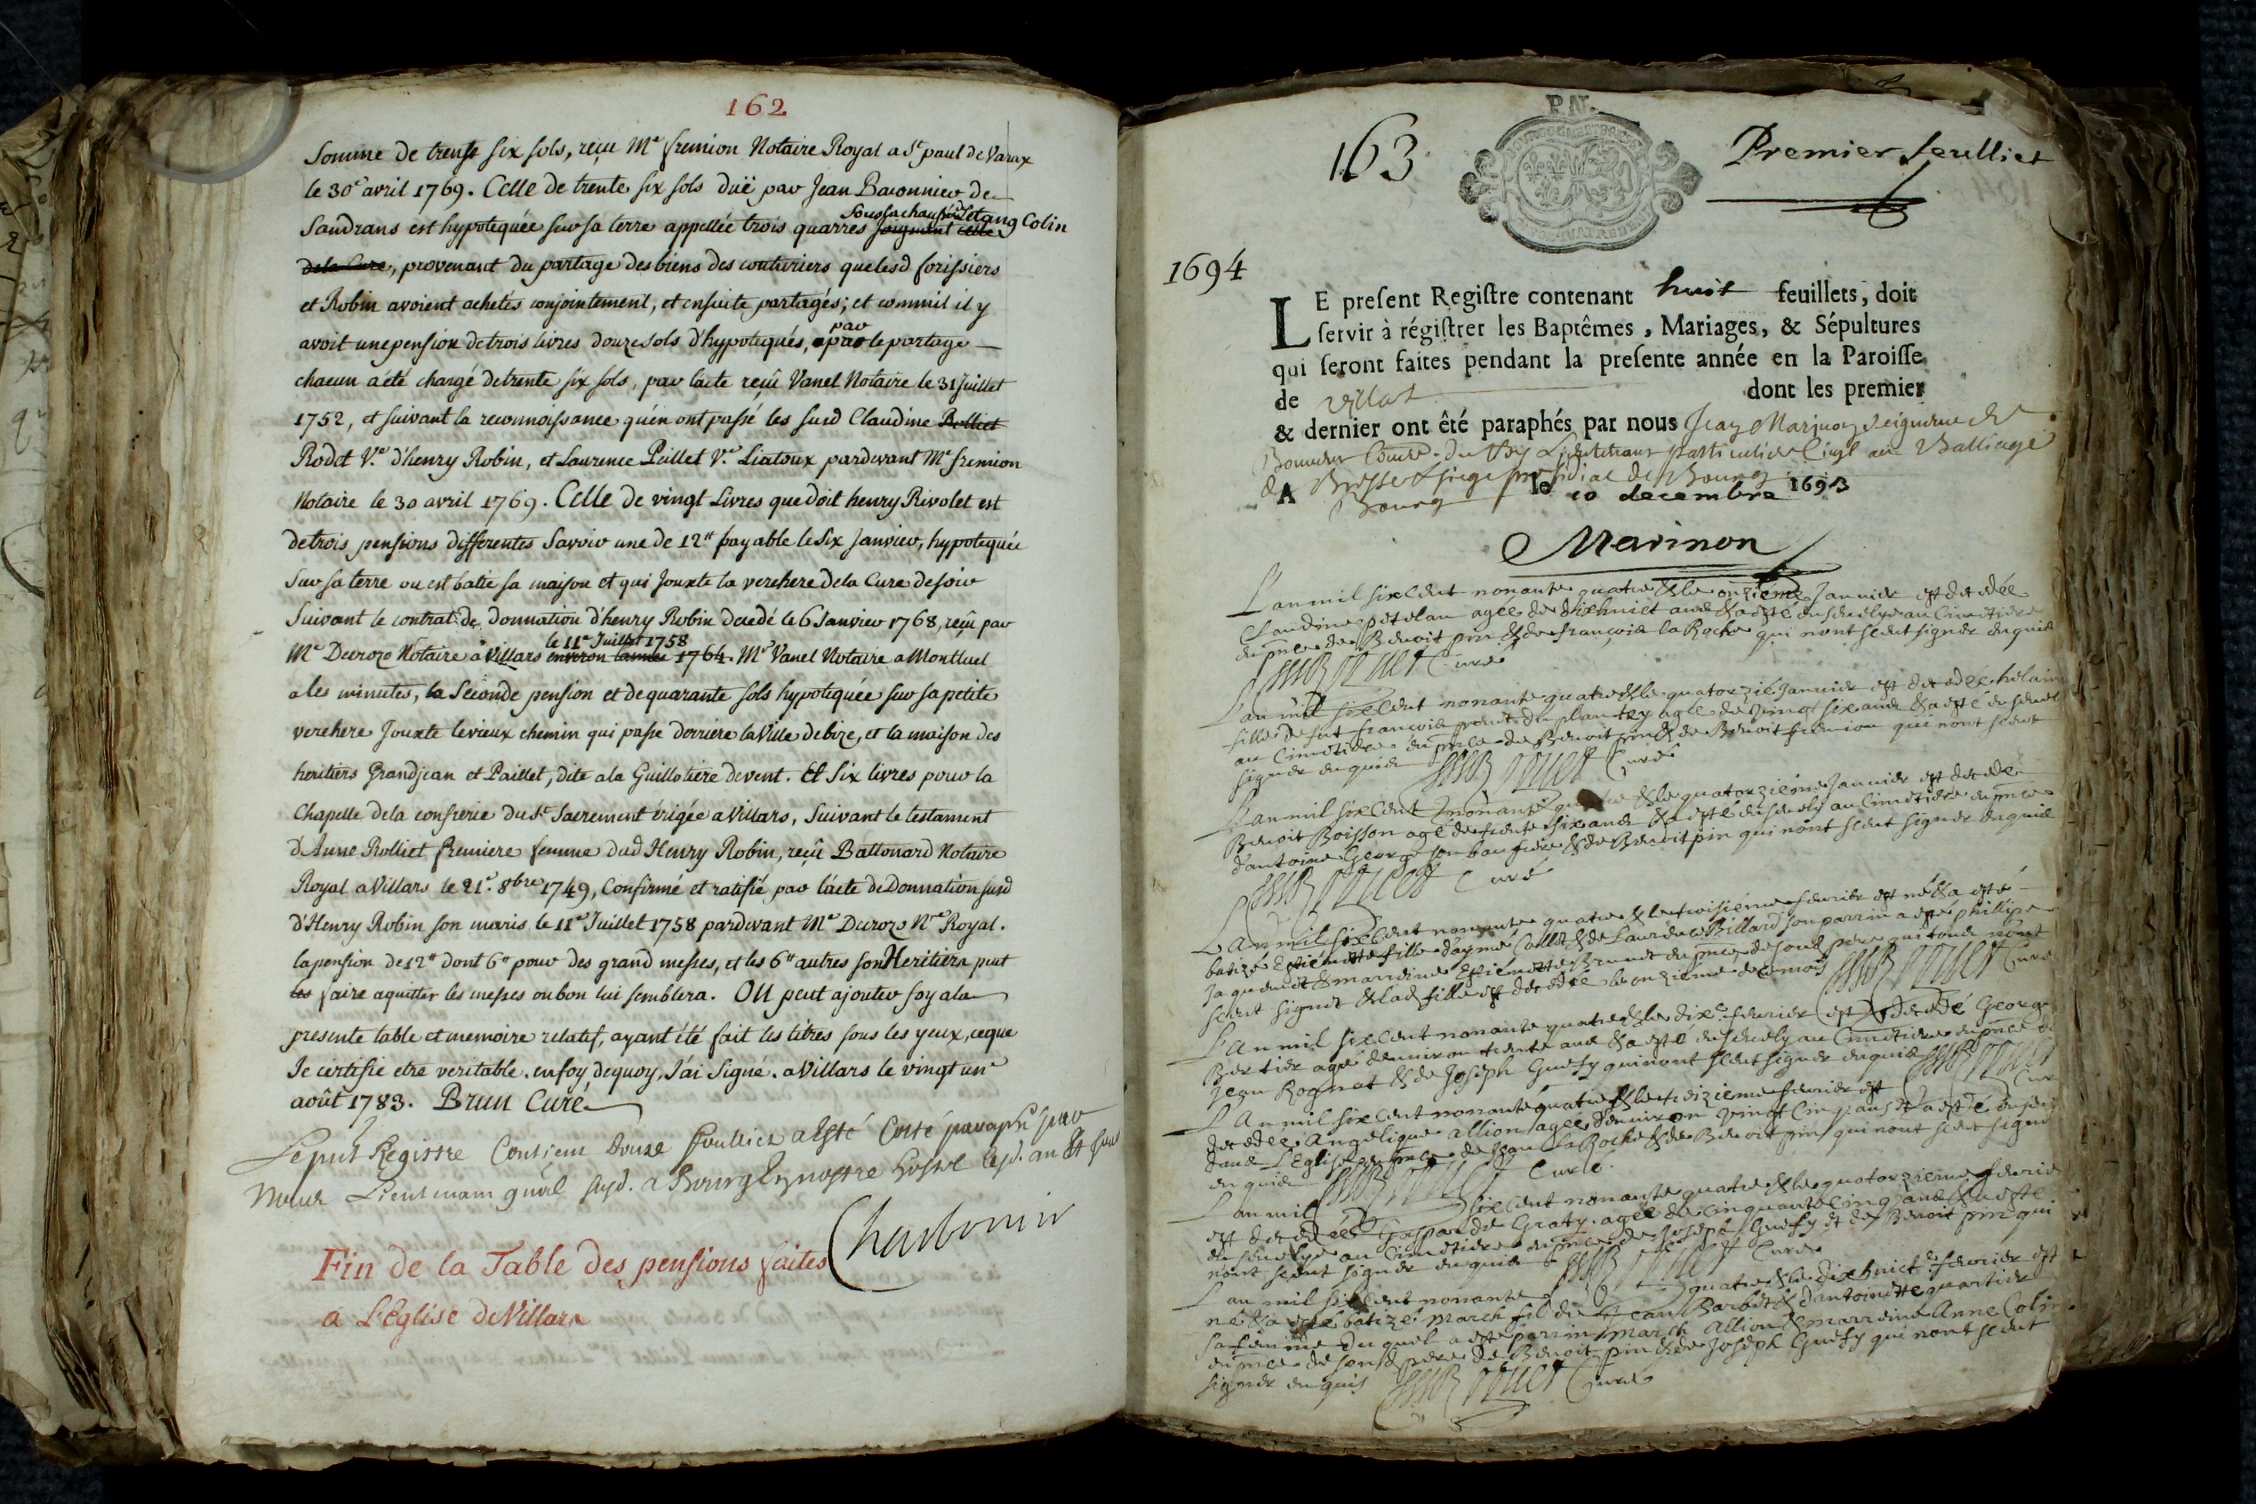 162
Somme de trente six sols, reçu Me fremion Notaire Royal a St paul de Varax
le 30e avril 1769. Celle de trente six sols duë par Jean Baronnier de
Sandrans est hypotequée sur sa terre appellée trois quarres joignant celle sous la chaussée de l'etang Colin
de la Cure, provenant du partage des biens des couturiers que lesd forissiers
et Robin avoient achetés conjointement, et ensuite partagés; et comme il y
avoit une pension de trois livres douze sols d'hypotequés, par le partage
chacun a été chargé de trente six sols, par l'acte reçû Vanel Notaire le 31 Juillet
1752, et suivant la reconnoissance qu'en ont passé les susd Claudine Rolliet
Rodet Ve d'henry Robin, et Laurence Paillet Ve Liatoux pardevant Me fremion
Notaire le 30 avril 1769. Celle de vingt Livres que doit henry Rivolet est
de trois pensions differentes Savoir une de 12tt payable le Six Janvier, hypotequée
Sur sa terre ou est batie sa maison et qui Jouxte la verchere de la Cure de soir
Suivant le contrat de donnation d'henry Robin decedé le 6 Janvier 1768, reçû par
le 11e Juillet 1758
Me Ducroze Notaire a Villars environ l'année 1764. Me Vanel Notaire a Montluel
a les minutes, la Seconde pension et de quarante sols hypotequée sur sa petite
verchere Jouxte le vieux chemin qui passe derriere la Ville de bize, et la maison des
heritiers Grandjean et Paillet, dite a la Guillotiere de vent. Et Six livres pour la
Chapelle de la confrerie du St Sacrement érigée a Villars, Suivant le testament
d'Anne Rolliet premiere femme dud Henry Robin, reçû Battonard Notaire
Royal a Villars le 21e 8bre 1749, Confirmé et ratifié par l'acte de Donnation susd
d'Henry Robin son maris le 11e Juillet 1758 pardevant Me Ducroze Nre Royal.
la pension de 12tt dont 6tt pour des grand messes, et les 6tt autres son Heritiers peut
les faire aquitter les messes ou bon lui semblera. On peut ajouter foy a la
presente table et memoire relatif, ayant été fait les titres sous les yeux, ce que
Je certifie etre veritable. en foy de quoy, J'ai Signé. a Villars le vingt un
août 1783. Brun Curé
Le pnt Registre Contient Douze feuillets a Esté Cotté paraphé par
Nous Lieutenant gnal susd. a Bourg En nostre hostel lesd. an Et jour
Charbonnier
Fin de la Table des pensions faites
a L'Eglise de Villars
163
Premier feuilliet
1694
LE present Registre contenant huit feuillets, doit
servir à régistrer les Baptêmes, Mariages, & Sépultures
qui seront faites pendant la presente année en la Paroisse
de villars dont les premier
& dernier ont êté paraphés par nous Jean Marinon Seigneur de
Conser. du Roy Lieutenant Particulier Civil au Balliage
de Bresse & siege presidial de Bourg
A Bourg le 10 decembre 1693
Marinon
L'an mil six cent nonante quatre & le onzieme Janvier est decedée
Claudine petelan agee de dixhuict ans & a esté ensevelye au Cimetiere
en pnce de Benoit pin & de françois la Roche qui n'ont sceut signer enquis
Curé
L'an mil six cent nonante quatre & le quatorzie Janvier est decedée helaine
fille de fut françois du plantey agee de vingt six ans & a esté ensevel
au Cimetiere en pnce de Benoit pin & de Benoit fremion qui n'ont sceut
signer enquis Curé
L'an mil six cent nonante quatre & le quatorzieme Janvier est decedé
Benoit Boisson agé de trente six ans & a esté ensevely au Cimetiere en pnce
d'antoine George son beau frere & de Benoit pin qui n'ont sceut signer enquis
Curé
L'An mil six cent nonante quatre & le troisieme fevrier est né & a esté
batizé Estiennette fille d'aymé Collet & de Laurence Billard son parrin a esté phillipe
Jaquemet & marraine Estiennette Brunet en pnce de sond pere qui tous n'ont
sceut signer & lad fille est decedée le onzieme de ce mois Curé
L'An mil six cent nonante quatre & le dixe fevrier est decedé George
Bertier agé d'environ trente ans & a esté ensevely au Cimetiere en pnce de
Jean Rognat & de Joseph Guefy qui n'ont sceut signer enquis
L'An mil six cent nonante quatre & le treizieme fevrier est
decedee Angelique allion agee d'environ vingt cinq ans & a esté ensev
dans L'Eglise en pnce de Jean la Roche & de Benoit pin qui n'ont sceut signé
enquis Curé
L'an mil six cent nonante quatre & le quatorzieme fevrie
est decedée Gasparde Graty agée de cinquante cinq ans & a esté
ensevelye au Cimetiere en pnce de Joseph Guefy et de Benoit pin qui
n'ont sceut signer enquis Curé
L'an mil six cent nonante quatre & le dixhuict fevrier est
né & a esté batizé March fil de Jean Barbet & d'antoinette quartier
sa femme duquel a esté parrin March Allion & marraine Anne Colin
en pnce de sond pere de Benoit pin & de Joseph Guefy qui n'ont sceut
signer enquis Curé